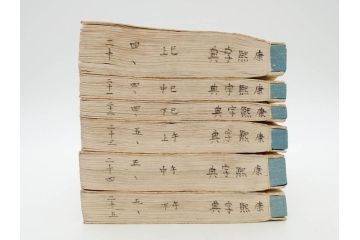 康熙字典 巳上 四、 二十
康熙字典 巳中 四、 二十一
康熙字典 巳下 四、 二十二
康熙字典 午上 五、 二十三
康熙字典 午中 五、 二十四
康熙字典 午下 五、 二十五